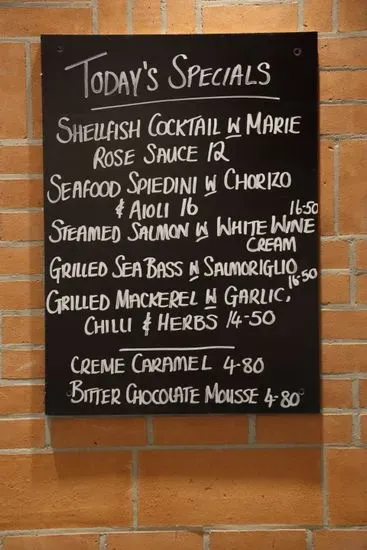 TODAY'S SPECIALS
SHELLFISH COCKTAIL W MARIE
ROSE SAUCE 12
SEAFOOD SPIEDINI W CHORIZO
& AIOLI 16
STEAMED SALMON W WHITE WINE 16-50
CREAM
GRILLED SEA BASS W SALMORIGLIO 16-50
GRILLED MACKEREL W GARLIC,
CHILLI & HERBS 14-50
CREME CARAMEL 4-80
BITTER CHOCOLATE MOUSSE 4-80